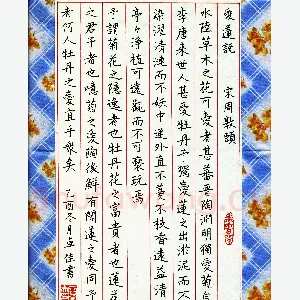 愛蓮説 宋周敦頤
水陸草木之花可愛者甚蕃晋陶淵明獨愛菊自
李唐来世人甚愛牡丹予獨愛蓮之出淤泥而不
染濯清漣而不妖中通外直不蔓不枝香遠益清
亭々净植可遠觀而不可褻玩焉
予謂菊花之隱逸者也牡丹花之富貴者也蓮花
之君子者也噫菊之愛陶後鮮有聞蓮之愛同予
者何人牡丹之愛宜乎衆矣 乙酉冬月 佳書